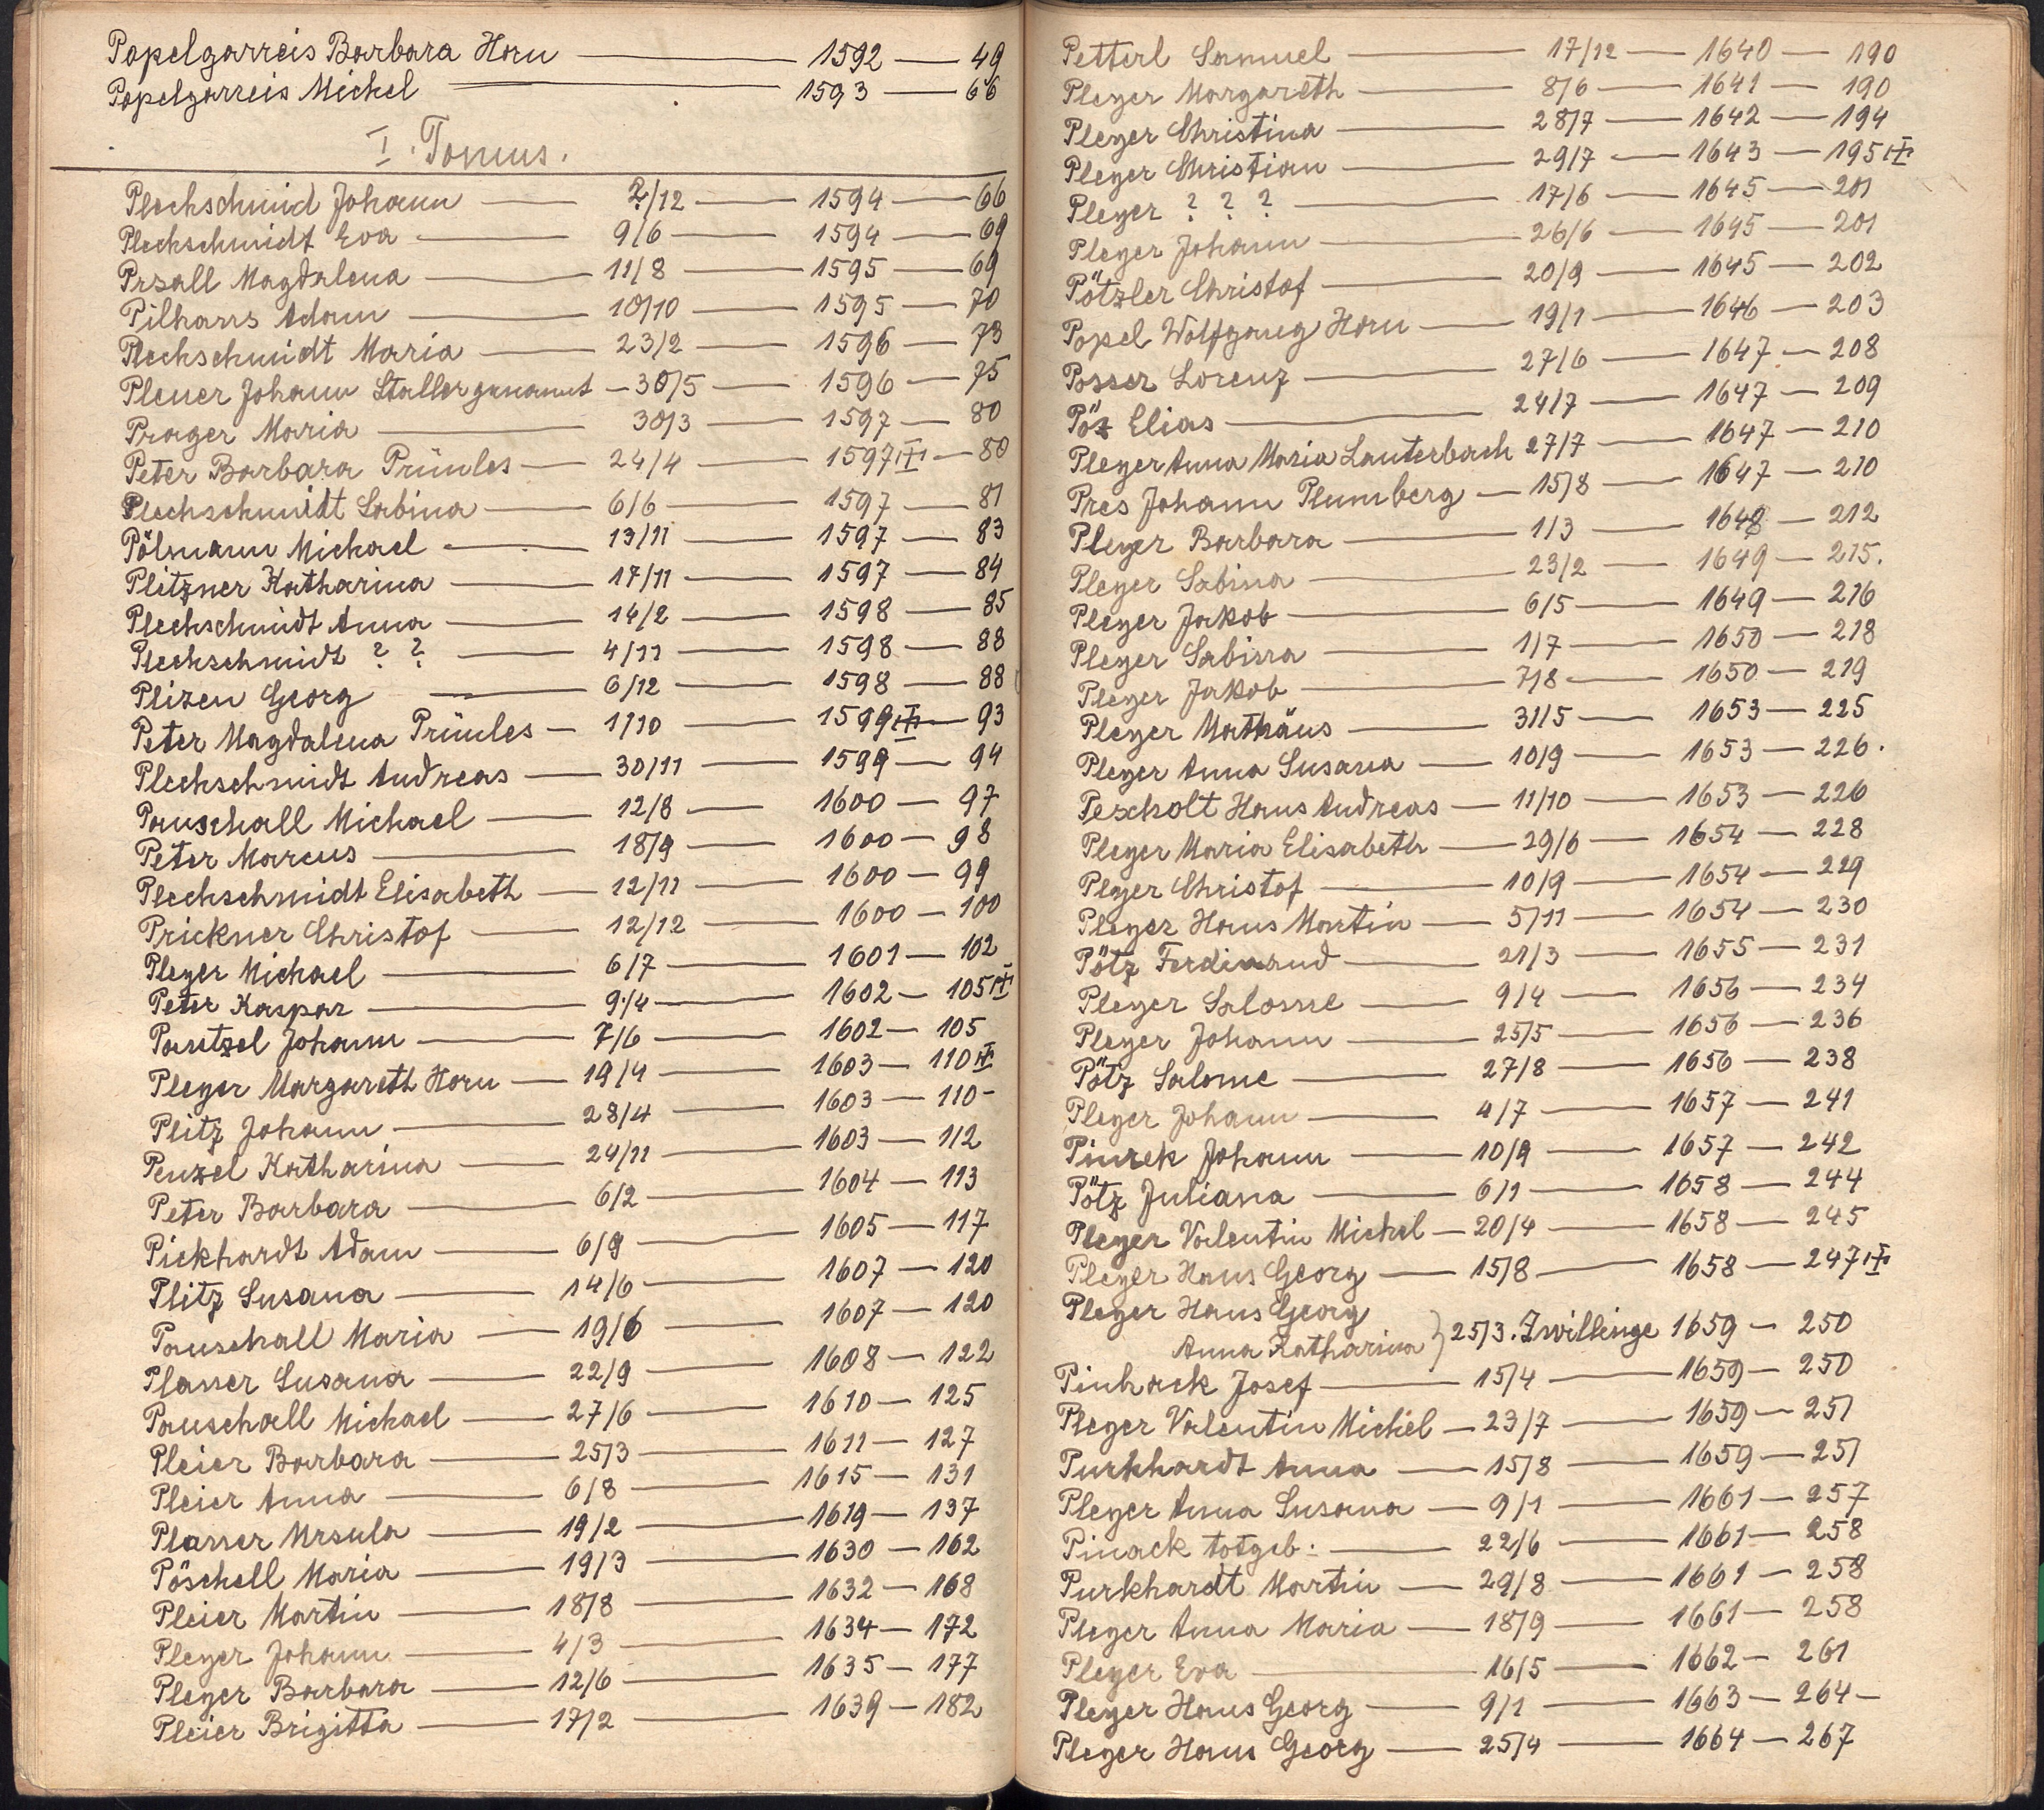 Popelgarreis Barbara Horn — 1592 — 49
Popelgarreis Michel — 1593 — 66
I. Tomus.
Plechschmid Johann — 2/12 — 1594 — 66
Plechschmidt Eva — 9/6 — 1594 — 69
Prsall Magdalena — 11/8 — 1595 — 69
Pilhans Adam — 10/10 — 1595 — 70
Plechschmidt Maria — 23/2 — 1596 — 73
Pleuer Johann Staller genannt — 30/5 — 1596 — 75
Prager Maria — 30/3 — 1597 — 80
Peter Barbara Prünles — 24/4 — 1597 — 80
Plechschmidt Sabina — 6/6 — 1597 — 81
Pölmann Michael — 13/11 — 1597 — 83
Plitzner Katharina — 17/11 — 1597 — 84
Plechschmidt Anna — 14/2 — 1598 — 85
Plechschmidt ? ? — 4/11 — 1598 — 88
Plizen Georg — 6/12 — 1598 — 88
Peter Magdalena Prünles — 1/10 — 1599 — 93
Plechschmidt Andreas — 30/11 — 1599 — 94
Pauschall Michael — 12/8 — 1600 — 97
Peter Marcus — 18/9 — 1600 — 98
Plechschmidt Elisabeth — 12/11 — 1600 — 99
Prickner Christof — 12/12 — 1600 — 100
Pleyer Michael — 6/7 — 1601 — 102
Peter Kaspar — 9/4 — 1602 — 105
Pantzel Johann — 7/6 — 1602 — 105
Pleyer Margareth Horn — 19/4 — 1603 — 110
Plitz Johann — 28/4 — 1603 — 110 -
Penzel Katharina — 24/11 — 1603 — 112
Peter Barbara — 6/2 — 1604 — 113
Pickhardt Adam — 6/9 — 1605 — 117
Plitz Susana — 14/6 — 1607 — 120
Pauschall Maria — 19/6 — 1607 — 120
Planer Susana — 22/9 — 1608 — 122
Pauschall Michael — 27/6 — 1610 — 125
Pleier Barbara — 25/3 — 1611 — 127
Pleier Anna — 6/8 — 1615 — 131
Planer Ursula — 19/2 — 1619 — 137
Pöschell Maria — 19/3 — 1630 — 162
Pleier Martin — 18/8 — 1632 — 168
Pleyer Johann — 4/3 — 1634 — 172
Pleyer Barbara — 12/6 — 1635 — 177
Pleier Brigitta — 17/2 — 1639 — 182
Petterl Samuel — 17/12 — 1640 — 190
Pleyer Margareth — 8/6 — 1641 — 190
Pleyer Christina — 28/7 — 1642 — 194
Pleyer Christian — 29/7 — 1643 — 195
Pleyer ? ? ? — 17/6 — 1645 — 201
Pleyer Johann — 26/6 — 1645 — 201
Pötzler Christof — 20/9 — 1645 — 202
Popel Wolfgang Horn — 19/1 — 1646 — 203
Posser Lorenz — 27/6 — 1647 — 208
Pöz Elias — 24/7 — 1647 — 209
Pleyer Anna Maria Lauterbach 27/7 — 1647 — 210
Pres Johann Plumberg — 15/8 — 1647 — 210
Pleyer Barbara — 1/3 — 1648 — 212
Pleyer Sabina — 23/2 — 1649 — 215.
Pleyer Jakob — 6/5 — 1649 — 216
Pleyer Sabina — 1/7 — 1650 — 218
Pleyer Jakob — 7/8 — 1650 — 219
Pleyer Mathäus — 31/5 — 1653 — 225
Pleyer Anna Susana — 10/9 — 1653 — 226.
Pescholt Hans Andreas — 11/10 — 1653 — 226
Pleyer Maria Elisabeth — 29/6 — 1654 — 228
Pleyer Christof — 10/9 — 1654 — 229
Pleyer Hans Martin — 5/11 — 1654 — 230
Pötz Ferdinand — 21/3 — 1655 — 231
Pleyer Salome — 9/4 — 1656 — 234
Pleyer Johann — 25/5 — 1656 — 236
Pötz Salome — 27/8 — 1656 — 238
Pleyer Johann — 4/7 — 1657 — 241
Pinrek Johann — 10/9 — 1657 — 242
Pötz Juliana — 6/1 — 1658 — 244
Pleyer Valentin Michel — 20/4 — 1658 — 245
Pleyer Hans Georg — 15/8 — 1658 — 247
Pleyer Hans Georg
Anna Katharina } 25/3. Zwillinge 1659 — 250
Pinhack Josef — 15/4 — 1659 — 250
Pleyer Valentin Michel — 23/7 — 1659 — 251
Purkhardt Anna — 15/8 — 1659 — 251
Pleyer Anna Susana — 9/1 — 1661 — 257
Pinack totgeb. — 22/6 — 1661 — 258
Purkhardt Martin — 29/8 — 1661 — 258
Pleyer Anna Maria — 18/9 — 1661 — 258
Pleyer Eva — 16/5 — 1662 — 261
Pleyer Hans Georg — 9/1 — 1663 — 264 —
Pleyer Hans Georg — 25/4 — 1664 — 267